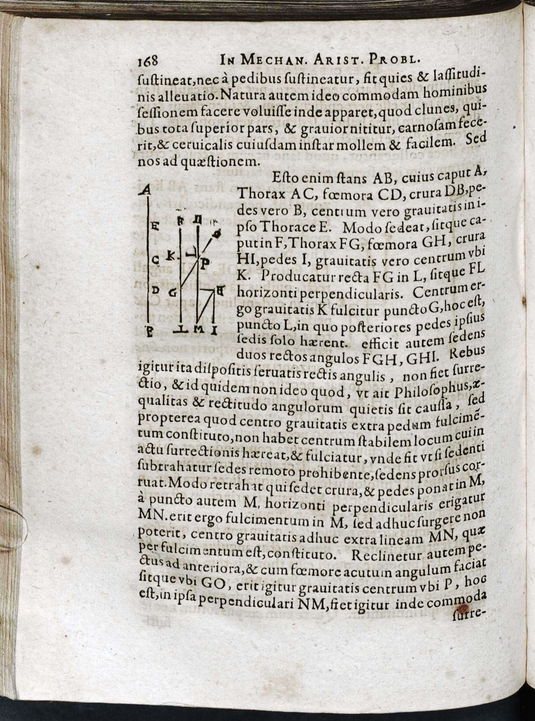 168 IN MECHAN. ARIST. PROBL.
sustineat, nec à pedibus sustineatur, fit quies & lassitudi-
nis alleuatio. Natura autem ideo commodam hominibus
sessionem facere voluisse inde apparet, quod clunes, qui-
bus tota superior pars, & grauior nititur, carnosam fece-
rit, & ceruicalis cuiusdam instar mollem & facilem. Sed
nos ad quæstionem.
Esto enim stans AB, cuius caput A,
Thorax AC, fœmora CD, crura DB, pe-
des vero B, centrum vero grauitatis in i-
pso Thorace E. Modo sedeat, sitque ca-
put in F, Thorax FG, fœmora GH, crura
HI, pedes I, grauitatis vero centrum vbi
K. Producatur recta FG in L, sitque FL
horizonti perpendicularis. Centrum er-
go grauitatis K fulcitur puncto G, hoc est,
puncto L, in quo posteriores pedes ipsius
sedis solo hærent. efficit autem sedens
duos rectos angulos FGH, GHI. Rebus
igitur ita dispositis seruatis rectis angulis, non fiet surre-
ctio, & id quidem non ideo quod, vt ait Philosophus, æ-
qualitas & rectitudo angulorum quietis sit caussa, sed
propterea quod centro grauitatis extra pedum fulcimē-
tum constituto, non habet centrum stabilem locum cui in
actu surrectionis hæreat, & fulciatur, vnde fit vt si sedenti
subtrahatur sedes remoto prohibente, sedens prorsus cor-
ruat. Modo retrahat qui sedet crura, & pedes ponat in M,
à puncto autem M, horizonti perpendicularis erigatur
MN. erit ergo fulcimentum in M, sed adhuc surgere non
poterit, centro grauitatis adhuc extra lineam MN, quæ
per fulcimentum est, constituto. Reclinetur autem pe-
ctus ad anteriora, & cum fœmore acutum angulum faciat
sitque vbi GO, erit igitur grauitatis centrum vbi P, hoc
est, in ipsa perpendiculari NM, fiet igitur inde commoda
surre-
A
E
C
D
B
F N O
K L P
G H
L M I